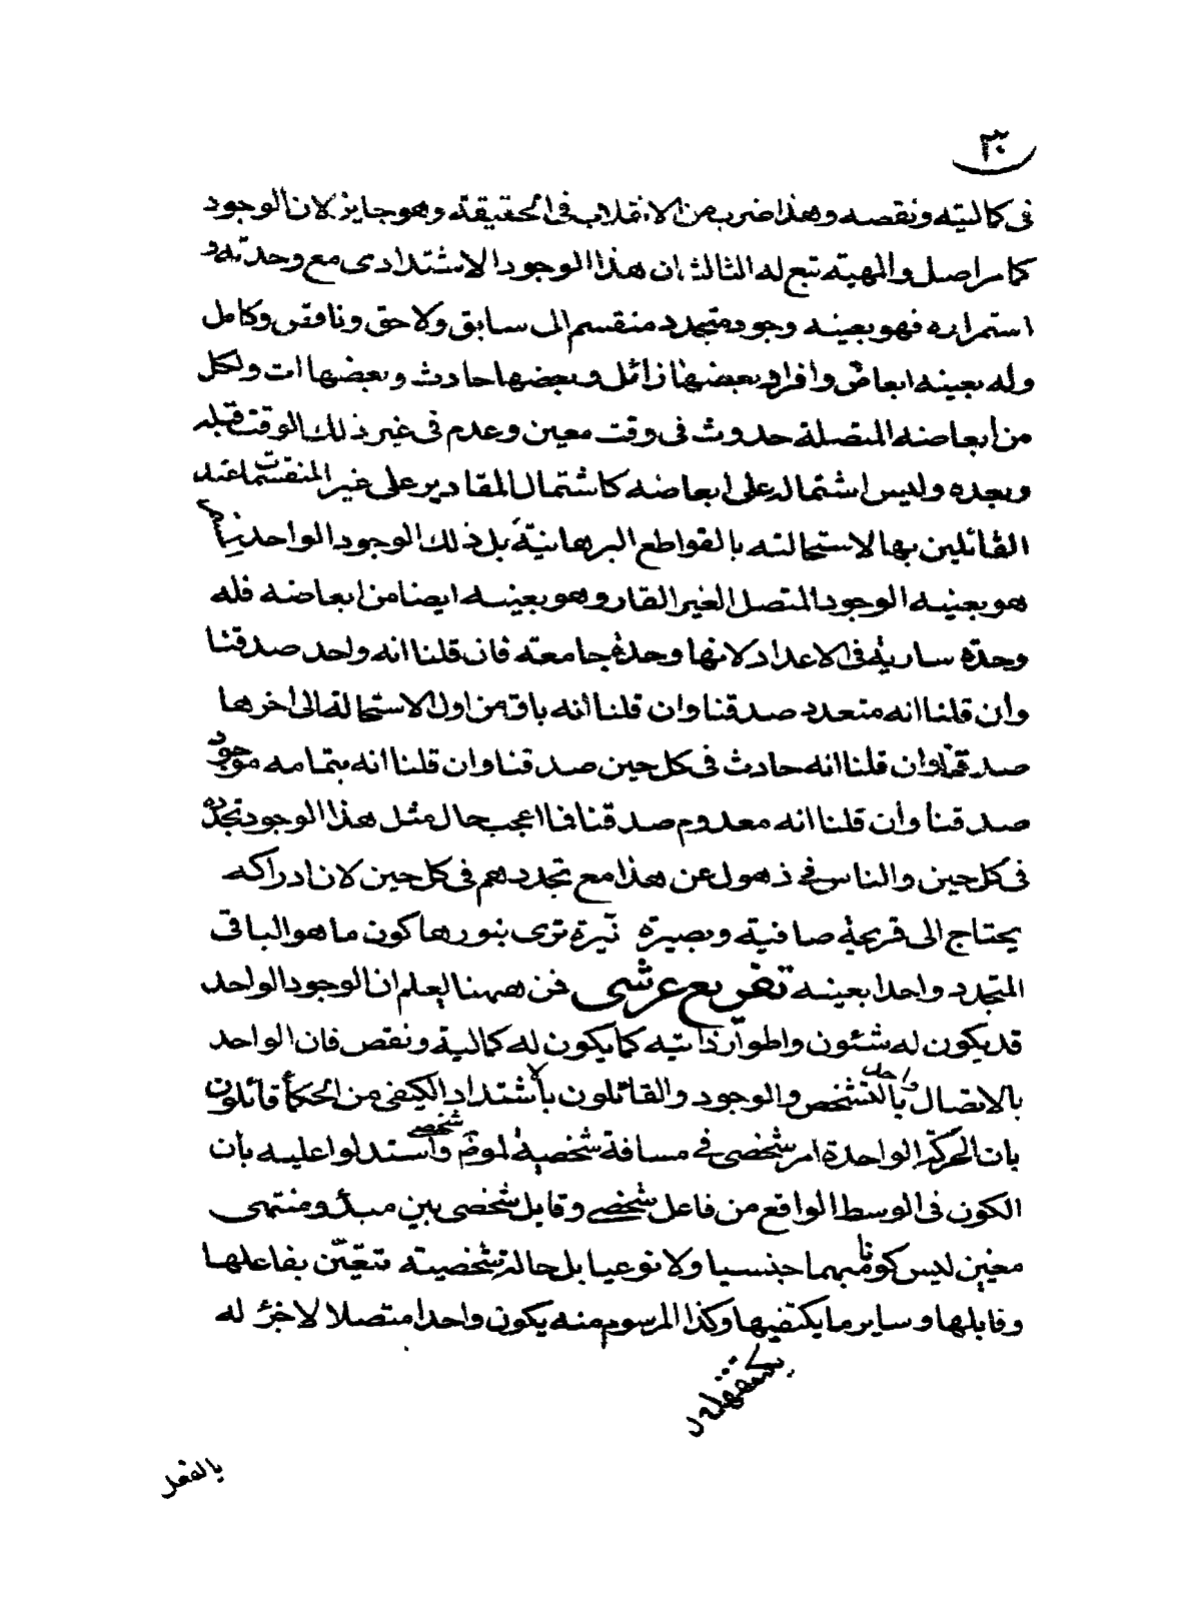 ٣٠
فى كماليته ونقصه وهذا ضرب من الانقلاب فى الحقيقة وهو جايز لان الوجود
كما مر اصل والمهية تبع له الثالث ان هذا الوجود الاشتدادى مع وحدته و
استمراره فهو بعينه وجود متجدد منقسم الى سابق ولاحق وناقص وكامل
وله بعينه ابعاض وافراد بعضها زائل وبعضها حادث وبعضها ات ولكل
من ابعاضه المتصلة حدوث فى وقت معين وعدم فى غير ذلك الوقت قبله
وبعده وليس اشتماله على ابعاضه كاشتمال المقادير على غير المنقسمات عند
القائلين بها لاستحالته بالقواطع البرهانية بل ذلك الوجود الواحد
هو بعينه الوجود المتصل الغير القار وهو بعينه ايضا من ابعاضه فله
وحدة سارية فى الاعداد لانها وحدة جامعة فان قلنا انه واحد صدقنا
وان قلنا انه متعدد صدقنا وان قلنا انه باق من اول الاستحالة الى اخرها
صدقنا وان قلنا انه حادث فى كل حين صدقنا وان قلنا انه بتمامه موجود
صدقنا وان قلنا انه معدوم صدقنا فما اعجب حال مثل هذا الوجود تجدده
فى كل حين والناس فى ذهول عن هذا مع تجددهم فى كل حين لان ادراكه
يحتاج الى قريحة صافية وبصيرة نيرة ترى بنورها كون ما هو الباقى
المتجدد واحدا بعينه تفريع عرشى فمن ههنا ليعلم ان الوجود الواحد
قد يكون له شئون واطوار ذاتية كما يكون له كمالية ونقص فان الواحد
بالاتصال واحد بالتشخص والوجود والقائلون بالاشتداد الكيفى من الحكماء قائلون
بان الحركة الواحدة امر شخصى فى مسافة شخصية لموضوع شخصى واستدلوا عليه بان
الكون فى الوسط الواقع من فاعل شخصى وقابل شخصى بين مبدء ومنتهى
معينين ليس كونا مبهما جنسيا ولا نوعيا بل حالة شخصية تتعين بفاعلها
وقابلها وساير ما يكتنفها وكذا المرسوم منه يكون واحدا متصلا لا جزء له
بالفعل